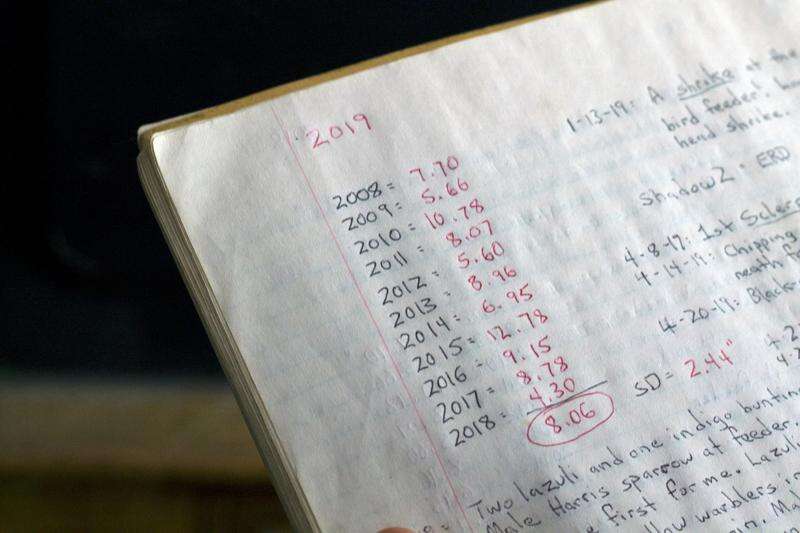 2019
2008 = 7.70
2009 = 5.66
2010 = 10.78
2011 = 8.07
2012 = 5.60
2013 = 8.96
2014 = 6.95
2015 = 12.78
2016 = 9.15
2017 = 8.78
2018 = 4.30
8.06
1-13-19: A shrike at the
bird feeder
head shrike.
Shadow2 = ERD
4-8-19: 1st
4-14-19: Chipping
neath
4-20-19: Black-
SD = 2.44"
Two lazuli and one indigo bunting
Male Harris sparrow at feeder.
first for me. Lazuli
warblers in